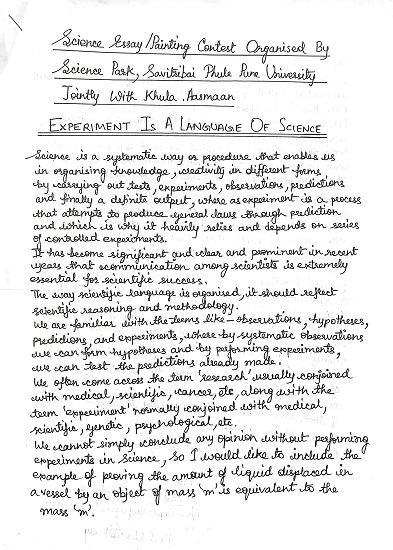 Science Essay/Painting Contest Organised By
Science Park, Savitribai Phule Pune University
Jointly With Khula Aasmaan
EXPERIMENT IS A LANGUAGE OF SCIENCE
Science is a systematic way or procedure that enables us
in organising knowledge, creativity in different forms
by carrying out tests, experiments, observations, predictions
and finally a definite output, where as experiment is a process
that attempts to produce general laws through prediction
and which is why it heavily relies and depends on series
of controlled experiments.
It has become significant and clear and prominent in recent
years that communication among scientists is extremely
essential for scientific success.
The way scientific language is organised, it should reflect
scientific reasoning and methodology.
We are familiar with the terms like - observations, hypotheses,
predictions, and experiments, where by systematic observations
we can form hypotheses and by performing experiments,
we can test the predictions already made.
We often come across the term 'research' usually conjoined
with medical, scientific, cancer, etc, along with the
term 'experiment' normally conjoined with medical,
scientific, genetic, psychological, etc.
We cannot simply conclude any opinion without performing
experiments in science, so I would like to include the
example of proving the amount of liquid displaced in
a vessel by an object of mass 'm' is equivalent to the
mass 'm'.